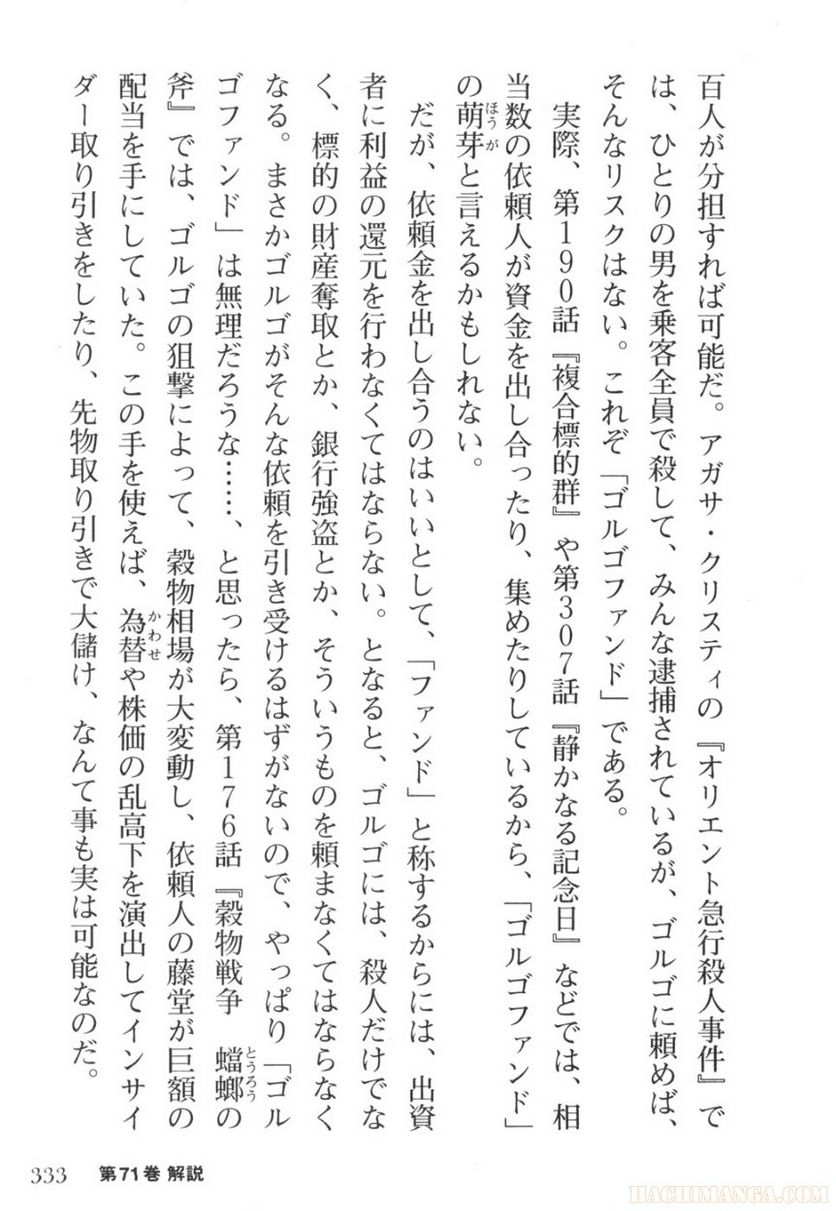 百人が分担すれば可能だ。アガサ・クリスティの『オリエント急行殺人事件』で
は、ひとりの男を乗客全員で殺して、みんな逮捕されているが、ゴルゴに頼めば、
そんなリスクはない。これぞ「ゴルゴファンド」である。
　実際、第190話『複合標的群』や第307話『静かなる記念日』などでは、相
当数の依頼人が資金を出し合ったり、集めたりしているから、「ゴルゴファンド」
の萌芽と言えるかもしれない。
ほうが
　だが、依頼金を出し合うのはいいとして、「ファンド」と称するからには、出資
者に利益の還元を行わなくてはならない。となると、ゴルゴには、殺人だけでな
く、標的の財産奪取とか、銀行強盗とか、そういうものを頼まなくてはならなく
なる。まさかゴルゴがそんな依頼を引き受けるはずがないので、やっぱり「ゴル
ゴファンド」は無理だろうな……、と思ったら、第176話『穀物戦争　蟷螂の
とうろう
斧』では、ゴルゴの狙撃によって、穀物相場が大変動し、依頼人の藤堂が巨額の
配当を手にしていた。この手を使えば、為替や株価の乱高下を演出してインサイ
かわせ
ダー取り引きをしたり、先物取り引きで大儲け、なんて事も実は可能なのだ。
333 第71巻 解説
HACHIMANGA.COM